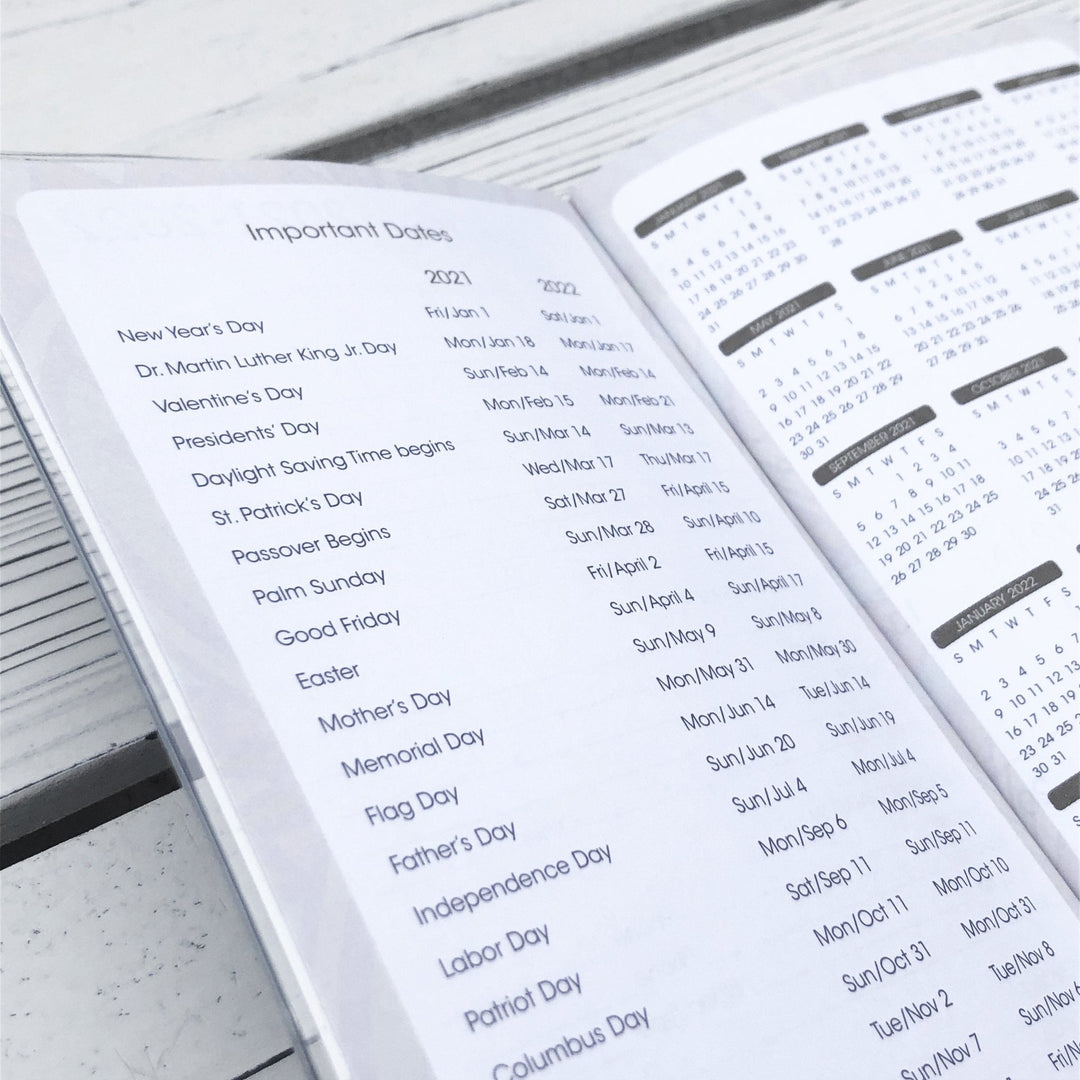 Important Dates
2021 2022
New Year's Day Fri/Jan 1 Sat/Jan 1
Dr. Martin Luther King Jr. Day Mon/Jan 18 Mon/Jan 17
Valentine's Day Sun/Feb 14 Mon/Feb 14
Presidents' Day Mon/Feb 15 Mon/Feb 21
Daylight Saving Time begins Sun/Mar 14 Sun/Mar 13
St. Patrick's Day Wed/Mar 17 Thu/Mar 17
Passover Begins Sat/Mar 27 Fri/April 15
Palm Sunday Sun/Mar 28 Sun/April 10
Good Friday Fri/April 2 Fri/April 15
Easter Sun/April 4 Sun/April 17
Mother's Day Sun/May 9 Sun/May 8
Memorial Day Mon/May 31 Mon/May 30
Flag Day Mon/Jun 14 Tue/Jun 14
Father's Day Sun/Jun 20 Sun/Jun 19
Independence Day Sun/Jul 4 Mon/Jul 4
Labor Day Mon/Sep 6 Mon/Sep 5
Patriot Day Sat/Sep 11 Sun/Sep 11
Columbus Day Mon/Oct 11 Mon/Oct 10
Sun/Oct 31 Mon/Oct 31
Tue/Nov 2 Tue/Nov 8
Sun/Nov 7 Sun/Nov
JANUARY 2021
S M T W T F S
1 2
3 4 5 6 7 8 9
10 11 12 13 14 15 16
17 18 19 20 21 22 23
24 25 26 27 28 29 30
31
MAY 2021
S M T W T F S
1
2 3 4 5 6 7 8
9 10 11 12 13 14 15
16 17 18 19 20 21 22
23 24 25 26 27 28 29
30 31
JUNE 2021
S M T W T F S
1 2 3 4 5
6 7 8 9 10 11 12
13 14 15 16 17 18 19
20 21 22 23 24 25 26
27 28 29 30
SEPTEMBER 2021
S M T W T F S
1 2 3 4
5 6 7 8 9 10 11
12 13 14 15 16 17 18
19 20 21 22 23 24 25
26 27 28 29 30
OCTOBER 2021
S M T W T F
1
3 4 5 6 7
10 11 12 13 14
17 18 19 20
24 25 26
31
JANUARY 2022
S M T W T F S
2 3 4 5 6 7
9 10 11 12 13
16 17 18 19
23 24 25
30 31